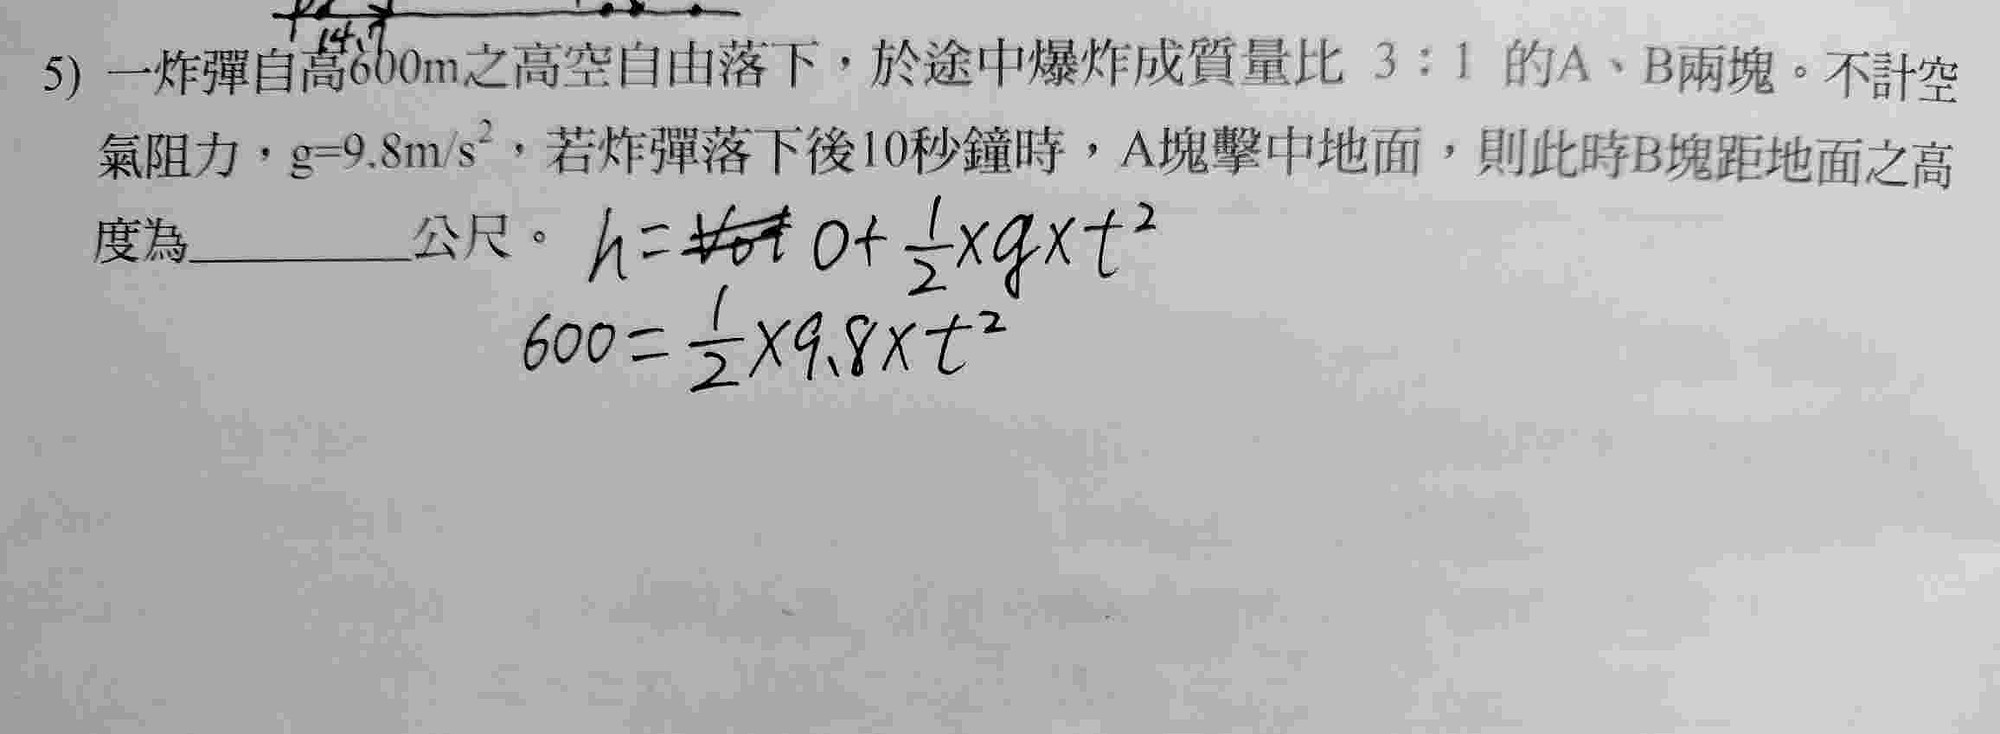 14.7
5) 一炸彈自高600m之高空自由落下，於途中爆炸成質量比 3：1 的A、B兩塊。不計空
氣阻力，g=9.8m/s²，若炸彈落下後10秒鐘時，A塊擊中地面，則此時B塊距地面之高
度為__________公尺。 h= 0+ 1/2×g×t²
600=1/2×9.8×t²